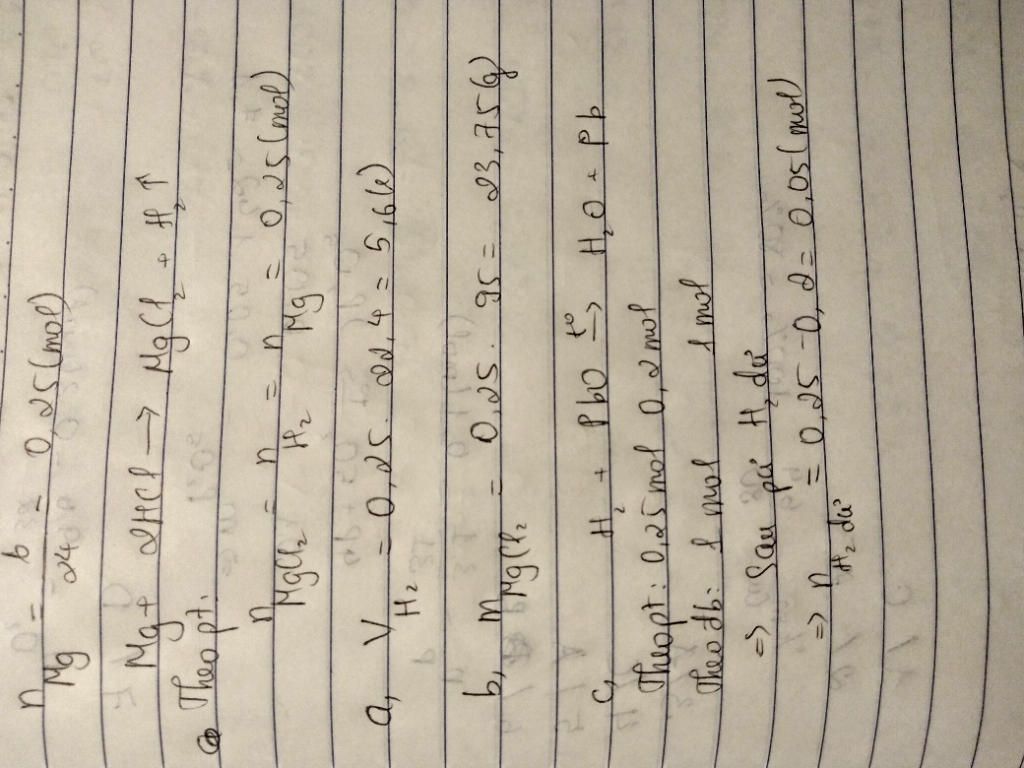 n Mg = 6/24 = 0,25 (mol)
Mg + 2HCl → MgCl2 + H2 ↑
Theo pt:
n MgCl2 = n H2 = n Mg = 0,25 (mol)
a, V H2 = 0,25 . 22,4 = 5,6 (l)
b, m MgCl2 = 0,25 . 95 = 23,75 (g)
c, H2 + PbO t° → H2O + Pb
Theo pt: 0,25 mol 0,2 mol
Theo đb: 1 mol 1 mol 1 mol
=> Sau pứ H2 dư
=> n H2 dư = 0,25 - 0,2 = 0,05 (mol)